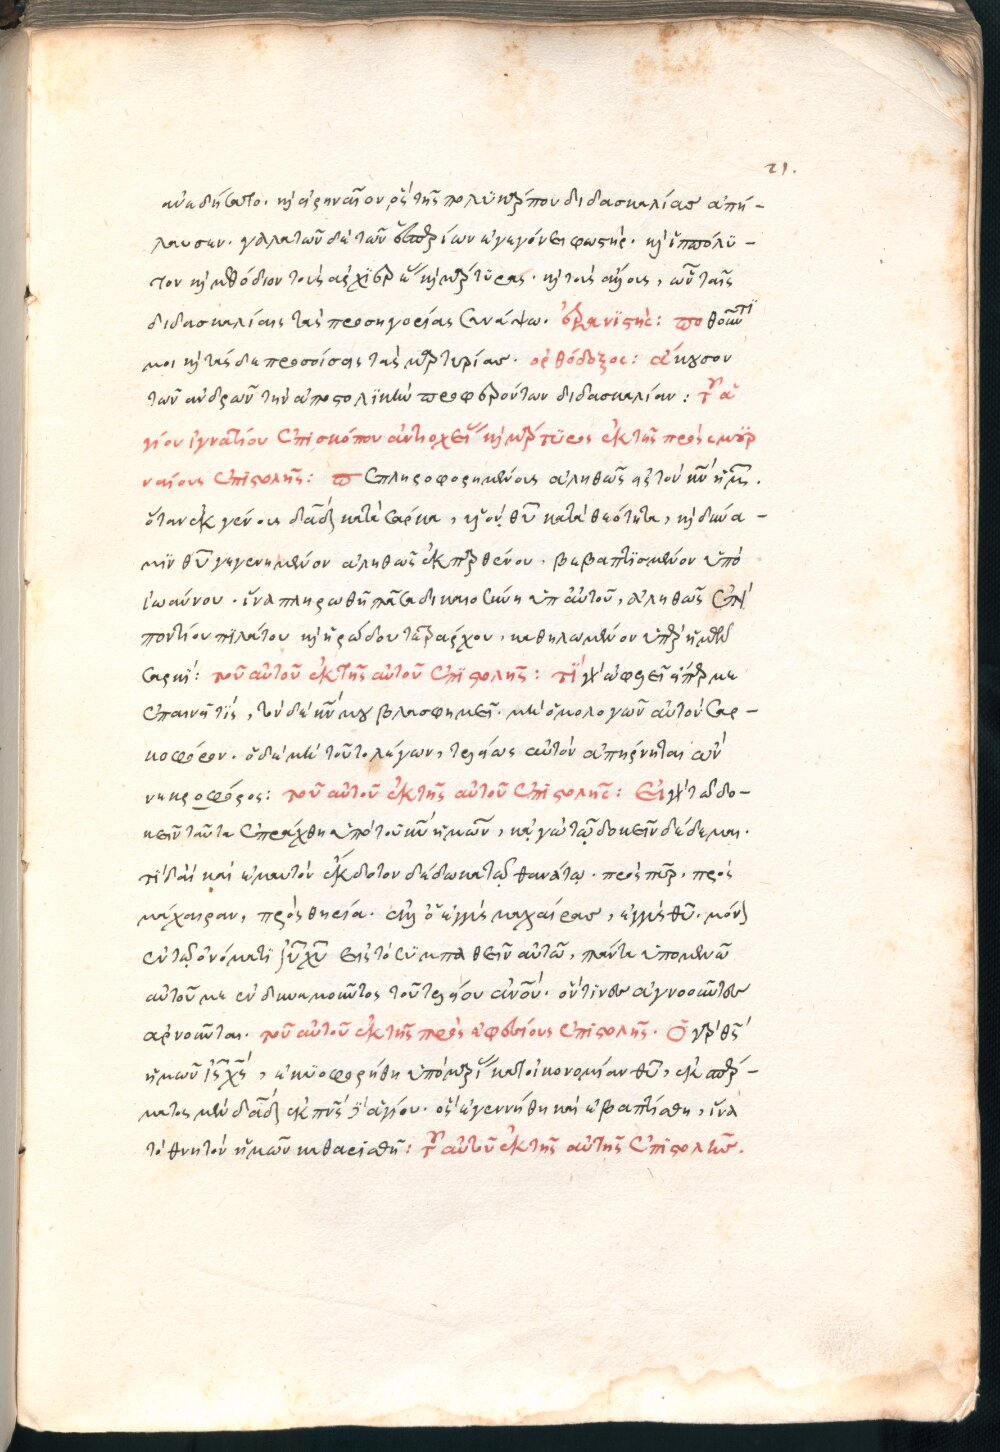 21.
ἀνεδήσατο. κ̀ εἰρηναῖον ὃς τῆς πολυκάρπου διδασκαλίας ἀπή-
λαυσεν. γαλατῶν δὲ τῶν ἑσπερίων ἐγεγόνει φωστήρ. κ̀ ἱππόλυ-
τον κ̀ μεθόδιον τοὺς ἀρχιερέας κ̀ μάρτυρας. κ̀ τοὺς ἄλλους, ὧν ταῖς
διδασκαλίαις τὰς προσηγορίας συνάψω. ἐρανιστής: ποθοῦντί
μοι κ̀ τάσδε προσοίσεις τὰς μαρτυρίας. ὀρθόδοξος: ἄκουσον
τῶν ἀνδρῶν τὴν ἀποστολικὴν προσφερόντων διδασκαλίαν: τοῦ ἁ
γίου ἰγνατίου ἐπισκόπου ἀντιοχείας κ̀ μάρτυρος ἐκ τῆς πρὸς σμυρ
ναίους ἐπιστολῆς: πεπληροφορημένους ἀληθῶς εἰς τὸν κν̄ ἡμῶν.
ὄντα ἐκ γένους δᾱδ κατὰ σάρκα, υἱὸν θῡ κατὰ θεότητα, κ̀ δύνα-
μιν θῡ γεγενημένον ἀληθῶς ἐκ παρθένου. βεβαπτισμένον ὑπὸ
ἰωάννου. ἵνα πληρωθῇ πᾶσα δικαιοσύνη ὑπ αὐτοῦ, ἀληθῶς ἐπὶ
ποντίου πιλάτου κ̀ ἡρώδου τετράρχου, καθηλωμένον ὑπὲρ ἡμῶν
σαρκί: τοῦ αὐτοῦ ἐκ τῆς αὐτοῦ ἐπιστολῆς: τί γὰρ ὠφελεῖ εἴπερ με
ἐπαινῇ τίς, τὸν δὲ κν̄ μου βλασφημεῖ. μὴ ὁμολογῶν αὐτὸν σαρ-
κοφόρον. ὁ δὲ μὴ τοῦτο λέγων, τελείως αὐτὸν ἀπήρνηται ὢν
νεκροφόρος: τοῦ αὐτοῦ ἐκ τῆς αὐτοῦ ἐπιστολῆς: Εἰ γὰρ τῷ δο-
κεῖν ταῦτα ἐπράχθη ὑπὸ τοῦ κῡ ἡμῶν, κἀγὼ τῷ δοκεῖν δέδεμαι.
τί δαὶ καὶ ἐμαυτὸν ἔκδοτον δέδωκα τῷ θανάτῳ. πρὸς πῦρ. πρὸς
μάχαιραν, πρὸς θηρία. ἀλλ ὁ ἐγγὺς μαχαίρας, ἐγγὺς θῡ. μόνον
ἐν τῷ ὀνόματι ῑῡ χῡ εἰς τὸ συμπαθεῖν αὐτῶ, πάντα ὑπομενῶ
αὐτοῦ με ἐνδυναμοῦντος τοῦ τελείου ἀνοῡ. ὅν τινες ἀγνοοῦντες
ἀρνοῦνται. τοῦ αὐτοῦ ἐκ τῆς πρὸς ἐφεσίους ἐπιστολῆς. Ὁ γὰρ θς̄
ἡμῶν ῑς̄ χς̄, ἐκυοφορήθη ὑπὸ μαρίας κατ οἰκονομίαν θῡ, ἐκ σπέρ-
ματος μὲν δᾱδ ἐκ πνς̄ δὲ ἁγίου. ὃς ἐγεννήθη καὶ ἐβαπτίσθη, ἵνα
τὸ θνητὸν ἡμῶν καθαρισθῇ: τοῦ αὐτοῦ ἐκ τῆς αὐτῆς ἐπιστολῆς.